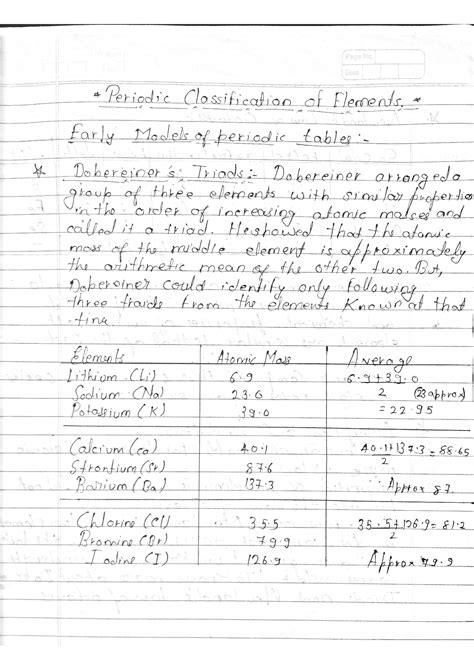 Page No.
Date
* Periodic Classification of Elements. *
Early Models of periodic tables:-
* Dobereiner's Triads:- Dobereiner arranged a
group of three elements with similar properties
in the order of increasing atomic masses and
called it a triad. He showed that the atomic
mass of the middle element is approximately
the arithmetic mean of the other two. But,
Dobereiner could identify only following
three traids from the elements Known at that
time
Elements Atomic Mass Average
Lithium (Li) 6.9 6.9+39.0
Sodium (Na) 23.0 2 (23 approx)
Potassium (K) 39.0 = 22.95
Calcium (ca) 40.1 40.1+137.3 = 88.65
Strontium (Sr) 87.6 2
Barium (Ba) 137.3 Approx 87.
Chlorine (Cl) 35.5 35.5+126.9 = 81.2
Bromine (Br) 79.9 2
Iodine (I) 126.9 Approx 79.9